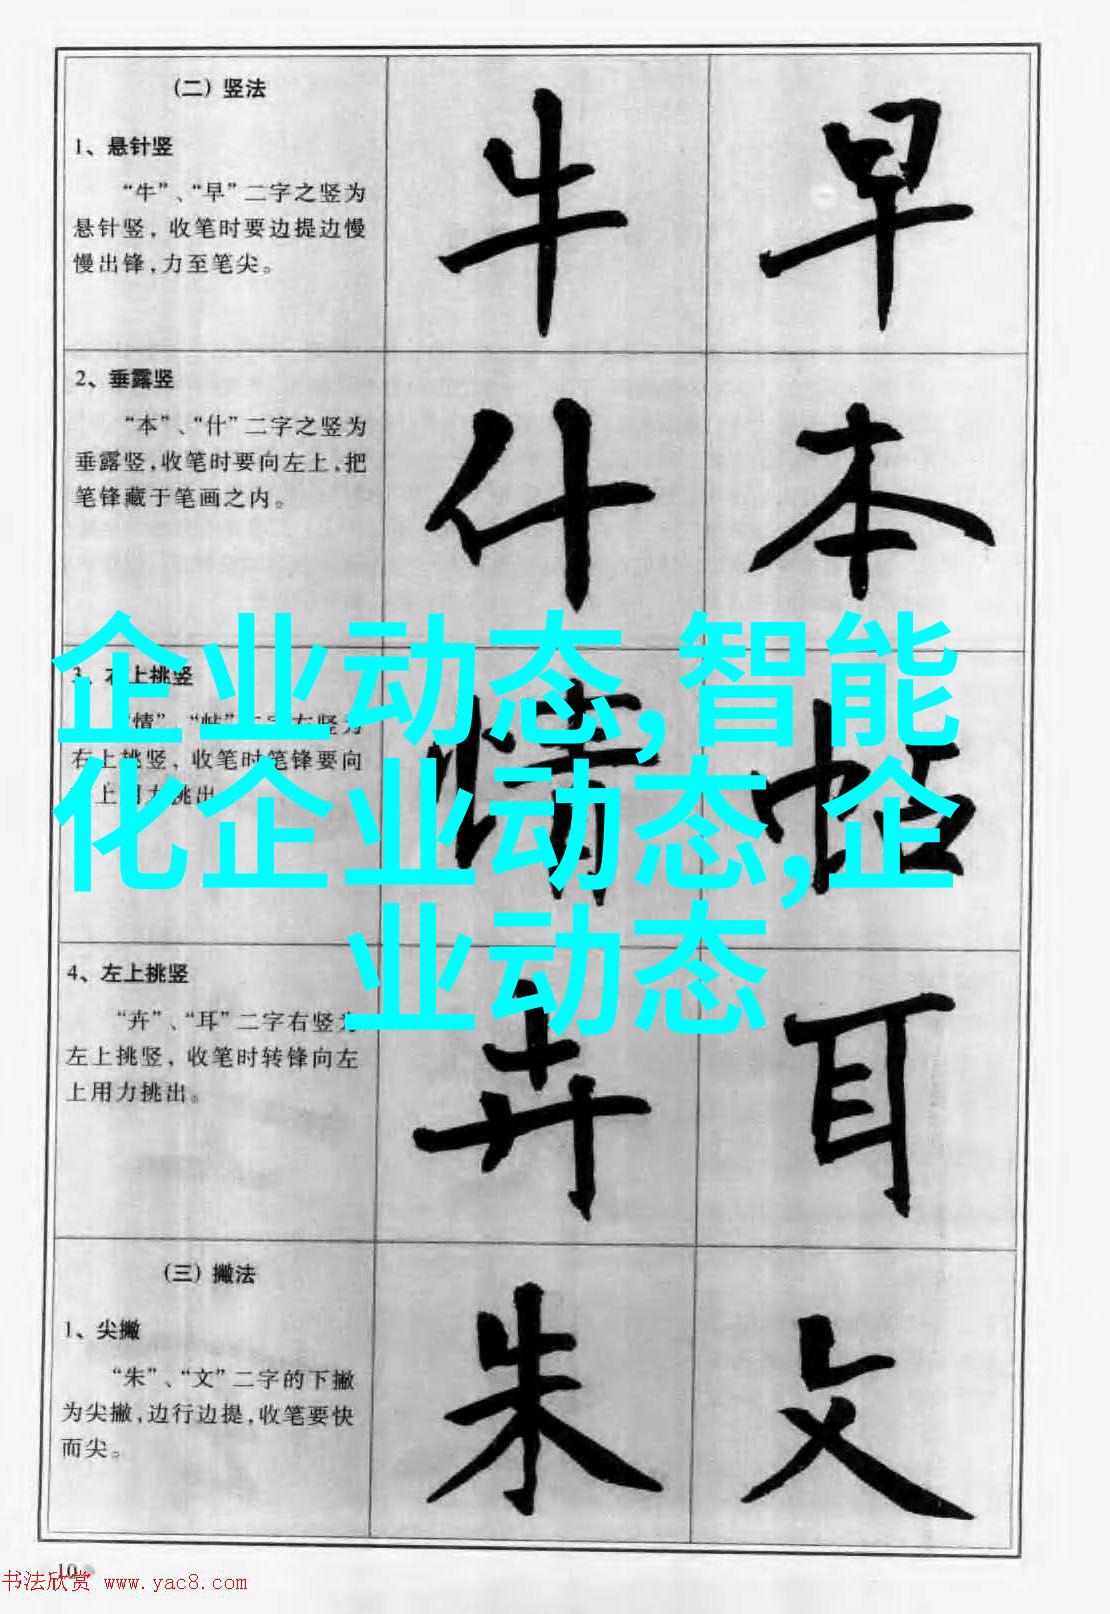 (二) 竖法
1、悬针竖
“牛”、“早”二字之竖为
悬针竖, 收笔时要边提边慢
慢出锋,力至笔尖。
牛 早
2、垂露竖
“本”、“什”二字之竖为
垂露竖,收笔时要向左上,把
笔锋藏于笔画之内。
什 本
企业动态,智能
化企业动态,企
业动态
3、右上挑竖
“情”、“帖”二字右竖为
右上挑竖, 收笔时笔锋要向
上用力挑出
情 帖
4、左上挑竖
“卉”、“耳”二字右竖为
左上挑竖, 收笔时转锋向左
上用力挑出。
卉 耳
(三) 撇法
1、尖撇
“朱”、“文”二字的下撇
为尖撇,边行边提,收笔要快
而尖。
朱 文
10
书法欣赏 www.yac8.com